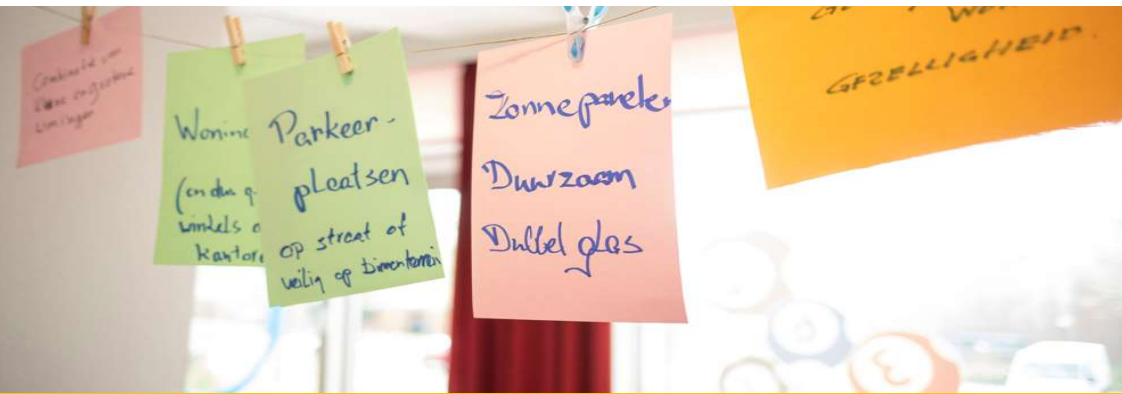 Combinatie van
kleine en grotere
woningen
Woning
(en dus g
winkels o
kantore
Parkeer-
plaatsen
op straat of
veilig op binnenterrein
Zonnepanelen
Duurzaam
Dubbel glas
GEZELLIGHEID.
3